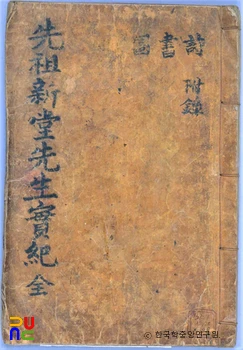 詩 附錄
書
先祖新堂先生實紀 全
© 한국학중앙연구원